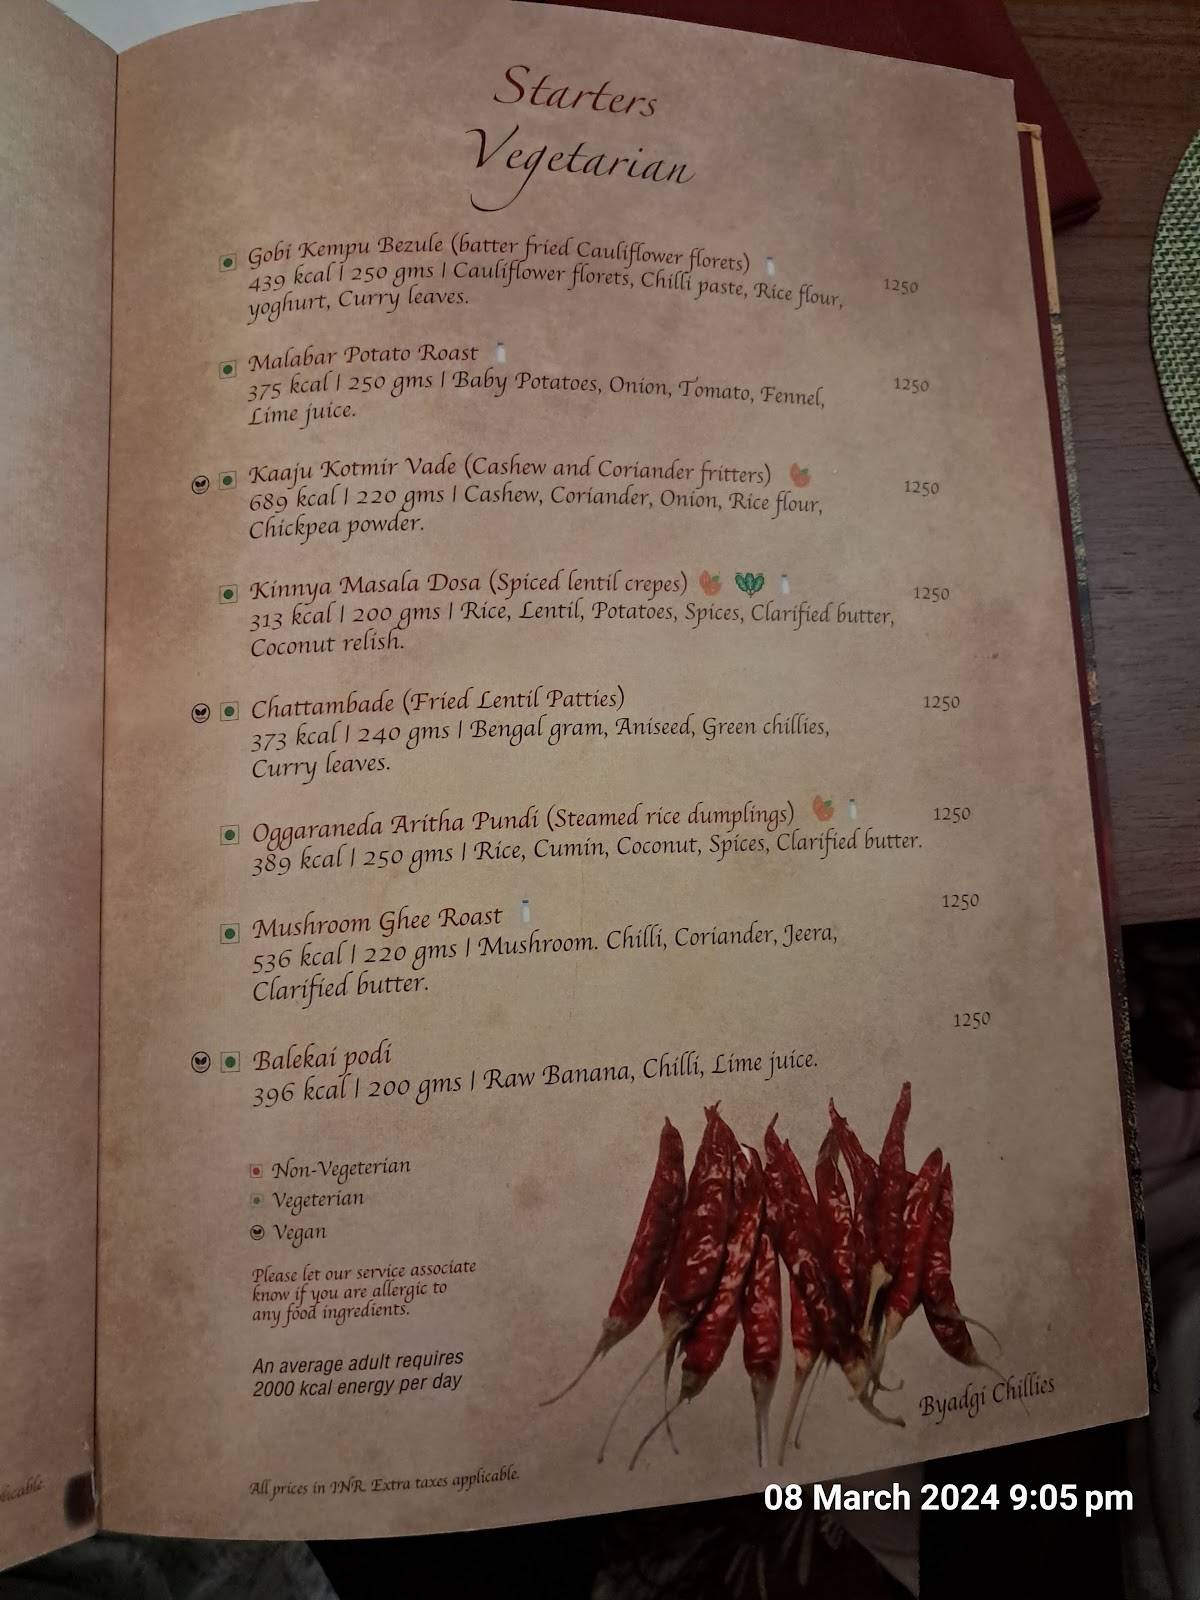 Starters
Vegetarian
Gobi Kempu Bezule (batter fried Cauliflower florets)
439 kcal | 250 gms | Cauliflower florets, Chilli paste, Rice flour, 1250
yoghurt, Curry leaves.
Malabar Potato Roast
375 kcal | 250 gms | Baby Potatoes, Onion, Tomato, Fennel, 1250
Lime juice.
Kaaju Kotmir Vade (Cashew and Coriander fritters)
689 kcal | 220 gms | Cashew, Coriander, Onion, Rice flour, 1250
Chickpea powder.
Kinnya Masala Dosa (Spiced lentil crepes) 1250
313 kcal | 200 gms | Rice, Lentil, Potatoes, Spices, Clarified butter,
Coconut relish.
Chattambade (Fried Lentil Patties) 1250
373 kcal | 240 gms | Bengal gram, Aniseed, Green chillies,
Curry leaves.
Oggaraneda Aritha Pundi (Steamed rice dumplings) 1250
389 kcal | 250 gms | Rice, Cumin, Coconut, Spices, Clarified butter.
Mushroom Ghee Roast 1250
536 kcal | 220 gms | Mushroom. Chilli, Coriander, Jeera,
Clarified butter.
1250
Balekai podi
396 kcal | 200 gms | Raw Banana, Chilli, Lime juice.
Non-Vegeterian
Vegeterian
Vegan
Please let our service associate
know if you are allergic to
any food ingredients.
An average adult requires
2000 kcal energy per day
Byadgi Chillies
All prices in INR. Extra taxes applicable.
08 March 2024 9:05 pm